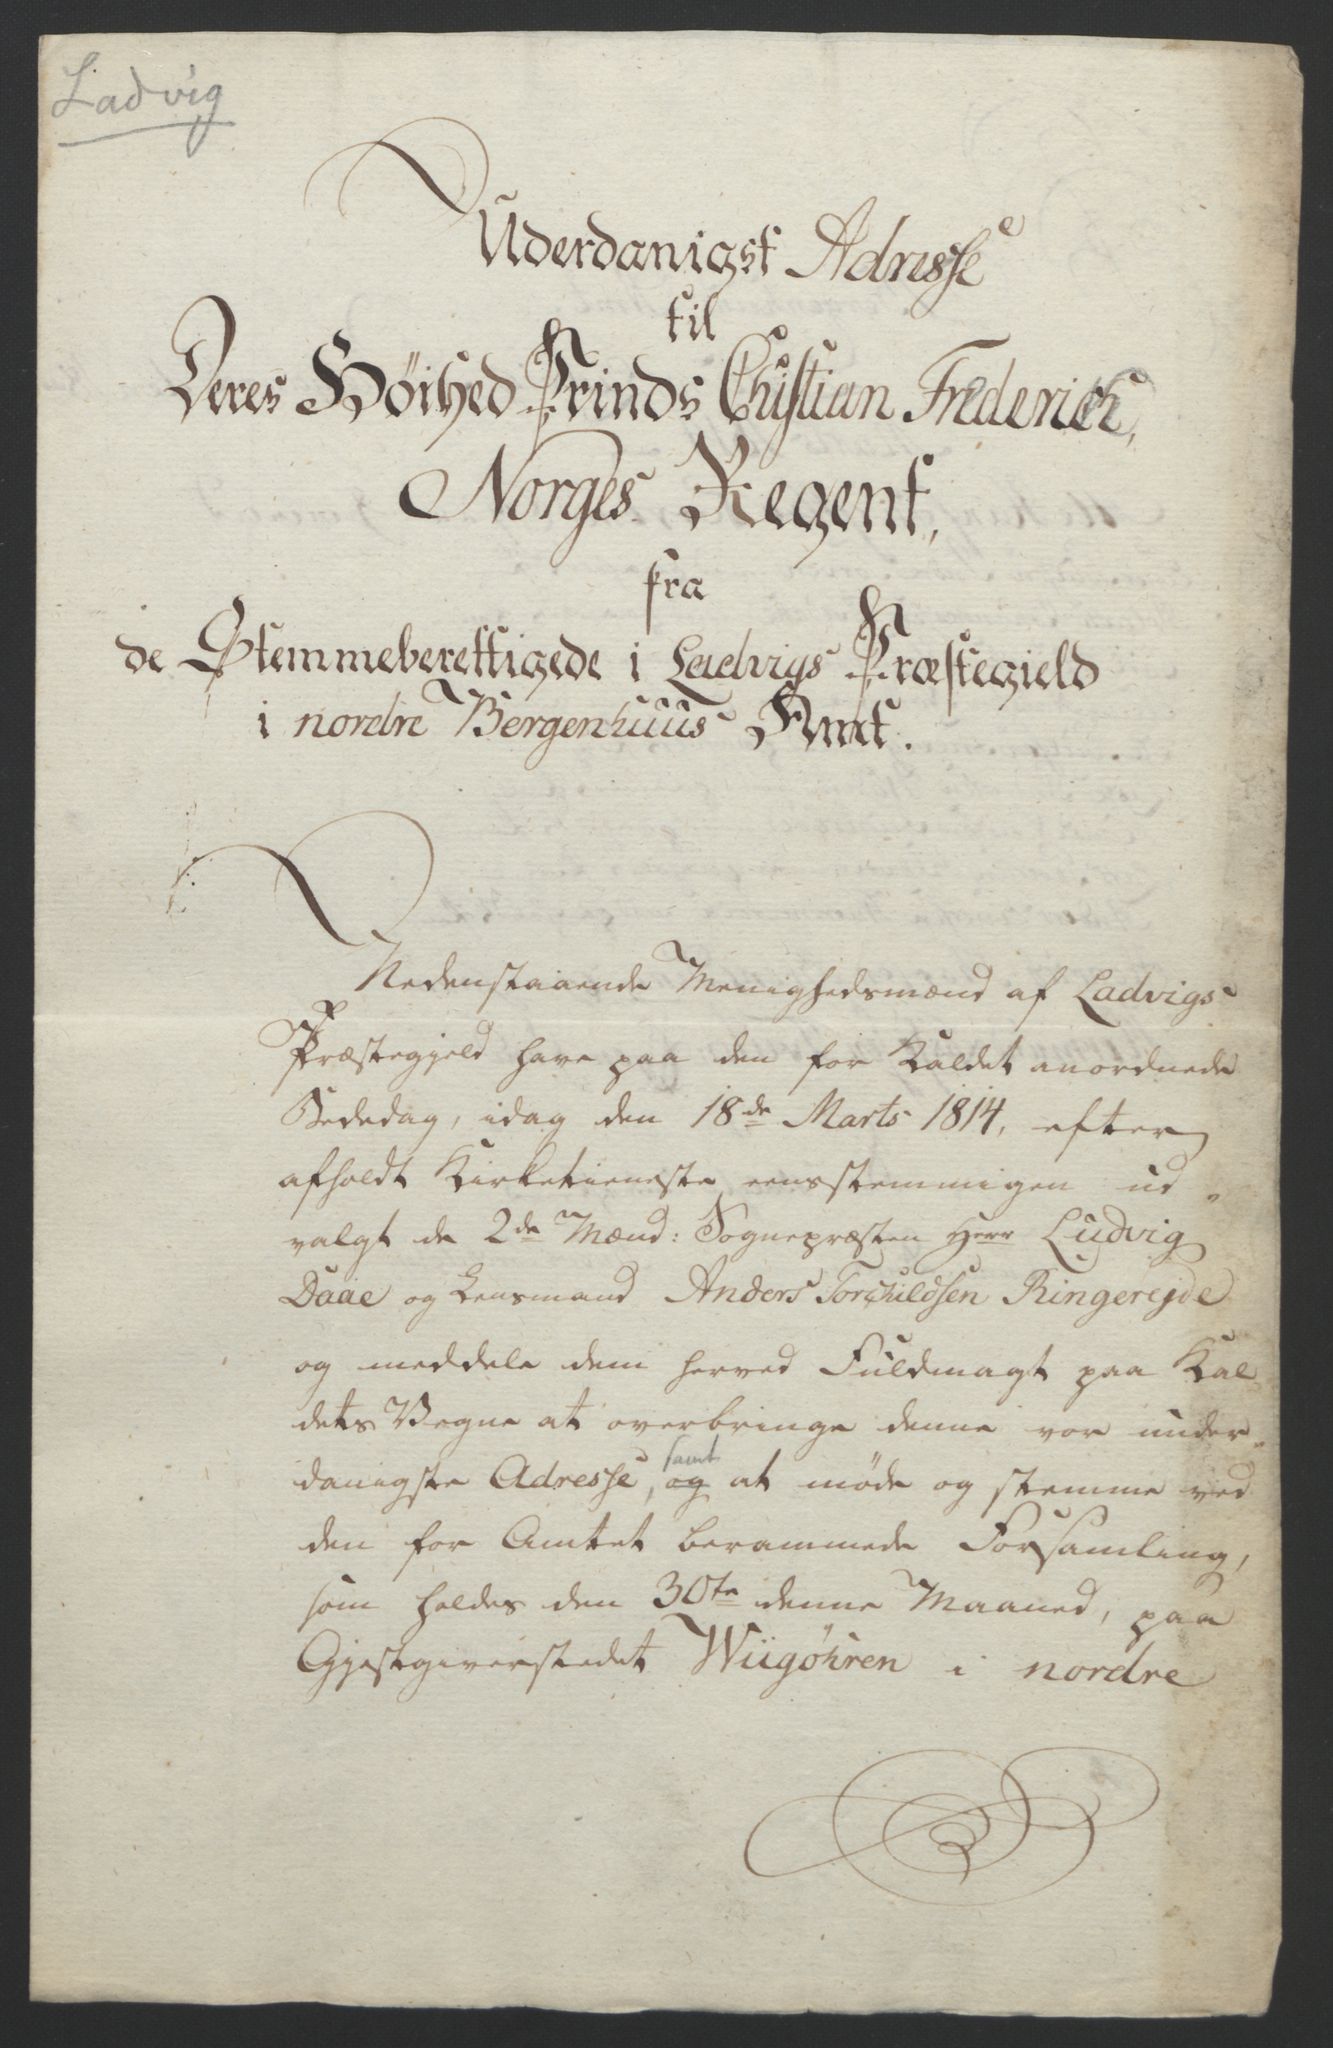 Ladvig
Uderdanigst Adresse
til
Deres Höihed Prinds Christian Frederich,
Norges Regent,
fra
de Stemmeberettigede i Ladvigs Præstegield
i nordre Bergenhuus Amt.
Nedenstaaende Menighedsmænd af Ladvigs
Præstegjeld have paa den for Kaldet anordnede
Bededag, idag den 18de Marts 1814, efter
afholdt Kirketieneste eensstemmigen ud-
valgt de 2de Mænd: Sognepræsten Herr Ludvig
Daae og Lensmand Anders Torchildsen Ringereide
og meddele dem herved Fuldmagt paa Kal-
dets Vegne at overbringe denne vor under-
danigste Adresse, og samt at møde og stemme ved
den for Amtet berammede Forsamling,
som holdes den 30te denne Maaned, paa
Gjestgiverstedet Wiigøhren i nordre